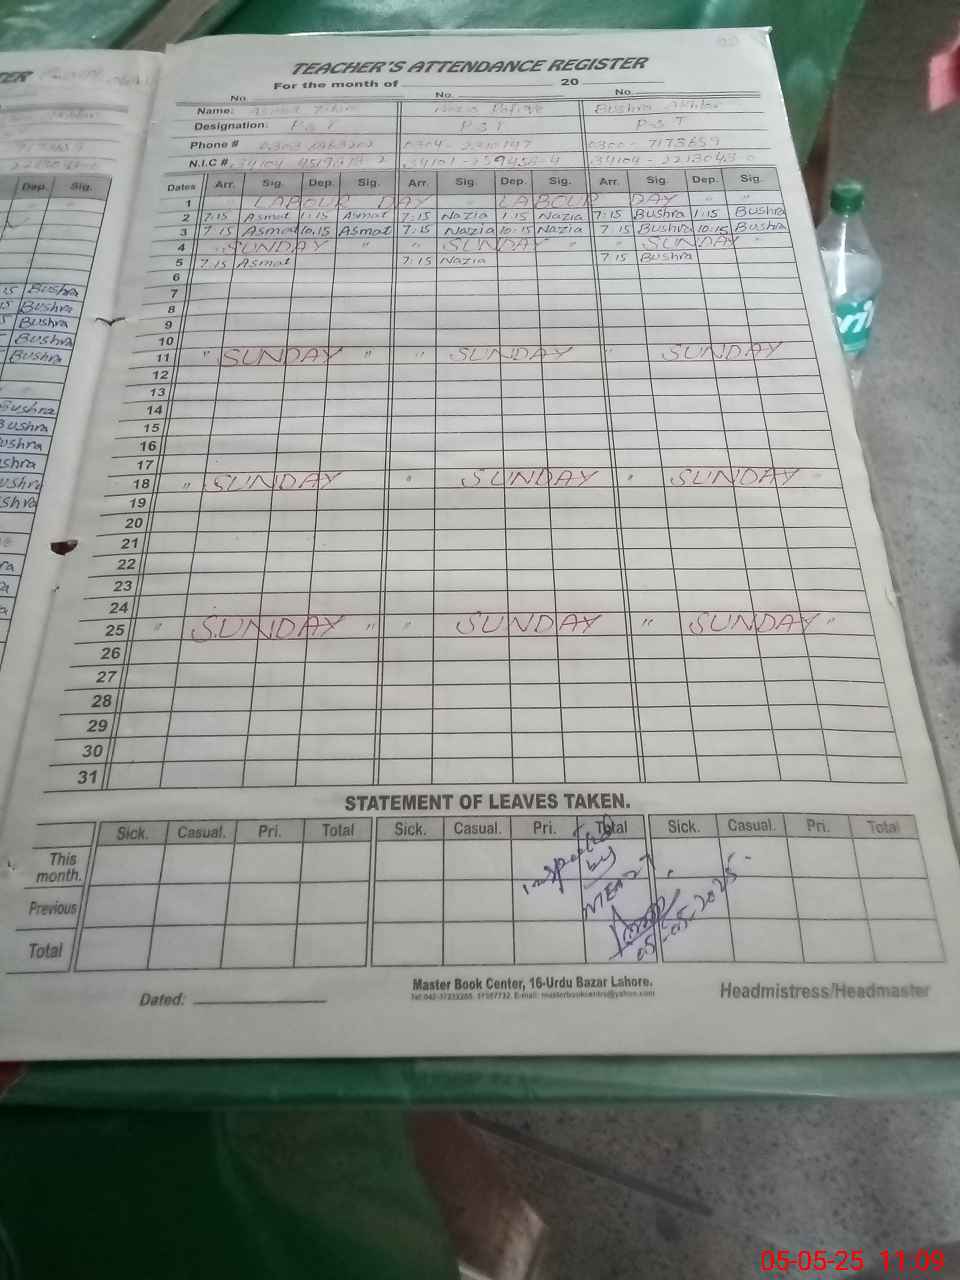 TEACHER'S ATTENDANCE REGISTER
For the month of 20
No. No. No.
Name: Bushra Akhtar
Designation: P S T P S T P S T
Phone # 0300 - 7173659
N.I.C #
Dates Arr. Sig. Dep. Sig. Arr. Sig. Dep. Sig. Arr. Sig. Dep. Sig.
1 LABOUR DAY LABOUR DAY " "
2 7:15 Asmat 1:15 Asmat 7:15 Nazia 1:15 Nazia 7:15 Bushra 1:15 Bushra
3 7:15 Asmat 10:15 Asmat 7:15 Nazia 10:15 Nazia 7:15 Bushra 10:15 Bushra
4 " SUNDAY " " SUNDAY " " SUNDAY "
5 7:15 Asmat 7:15 Nazia 7:15 Bushra
6
7
8
9
10
11 " SUNDAY " " SUNDAY " SUNDAY
12
13
14
15
16
17
18 " SUNDAY " SUNDAY " SUNDAY "
19
20
21
22
23
24
25 " SUNDAY " " SUNDAY " SUNDAY "
26
27
28
29
30
31
STATEMENT OF LEAVES TAKEN.
Sick. Casual. Pri. Total Sick. Casual. Pri. Total Sick. Casual. Pri. Total
This month.
Previous
Total
Inspected
by
MEA 27
05-05-2025
Master Book Center, 16-Urdu Bazar Lahore.
Dated: Headmistress/Headmaster
Dep. Sig.
Bushra
Bushra
Bushra
Bushra
Bushra
Bushra
05-05-25 11:09